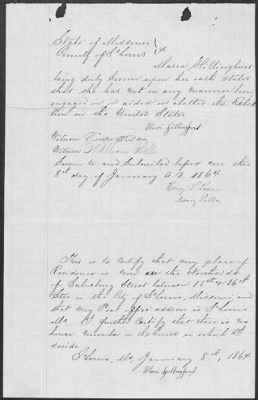 State of Missouri
County of St Louis } ss
Maria
being duly sworn upon her oath states
that she has not in any manner been
engaged in or aided or abetted the Rebel
lion in the United States
Maria
Witness
Witness
Sworn to and Subscribed before me this
8th day of January A.D. 1864
Notary Public
This is to Certify that my place of
Residence is now on the North side
of Salisbury Street between 15th & 16th
Sts in the City of St Louis, Missouri, and
that my Post office address is St Louis
Mo. I further Certify that there is no
house number on the house in which I
reside
St Louis, Mo, January 8th, 1864
Maria